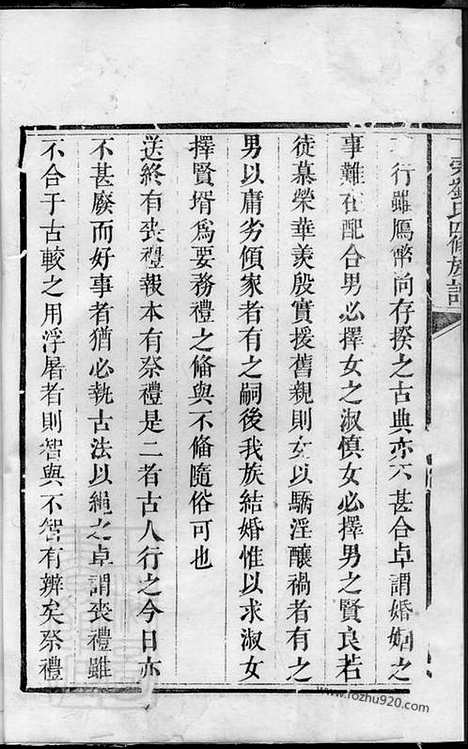 雲劉氏四修族譜
行雖鴈幣尚存揆之古典亦不甚合卓謂婚姻之
事難在配合男必擇女之淑慎女必擇男之賢良若
徒慕榮華羨殷實援舊親則女以驕淫釀禍者有之
男以庸劣傾家者有之嗣後我族結婚惟以求淑女
擇賢壻為要務禮之偹與不偹隨俗可也
送終有喪禮報本有祭禮是二者古人行之今日亦
不甚廢而好事者猶必執古法以繩之卓謂喪禮雖
不合于古較之用浮屠者則智與不智有辨矣祭禮
www.fozhu920.com